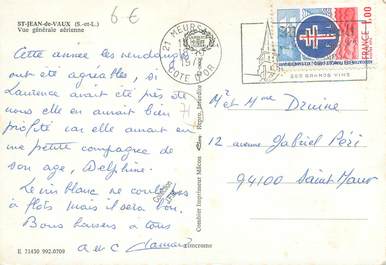 ST-JEAN-de-VAUX (S.-et-L.)
Vue générale aérienne
6 €
Cette année les vendanges
ont été agréables, si
Laurence avait été près de
nous elle en aurait bien
profité car elle aurait eu
une petite compagne de
son age, Delphine.
Le vin blanc ne coule pas
à flots mais il sera bon.
Bons baisers à tous
E 21430 992.0709
Combier Imprimeur Mâcon
21 MEURSAULT
COTE D'OR
SES GRANDS VINS
FRANCE 1,00
Mr et Mme Druine
12 avenue Gabriel Péri
94100 Saint Maur